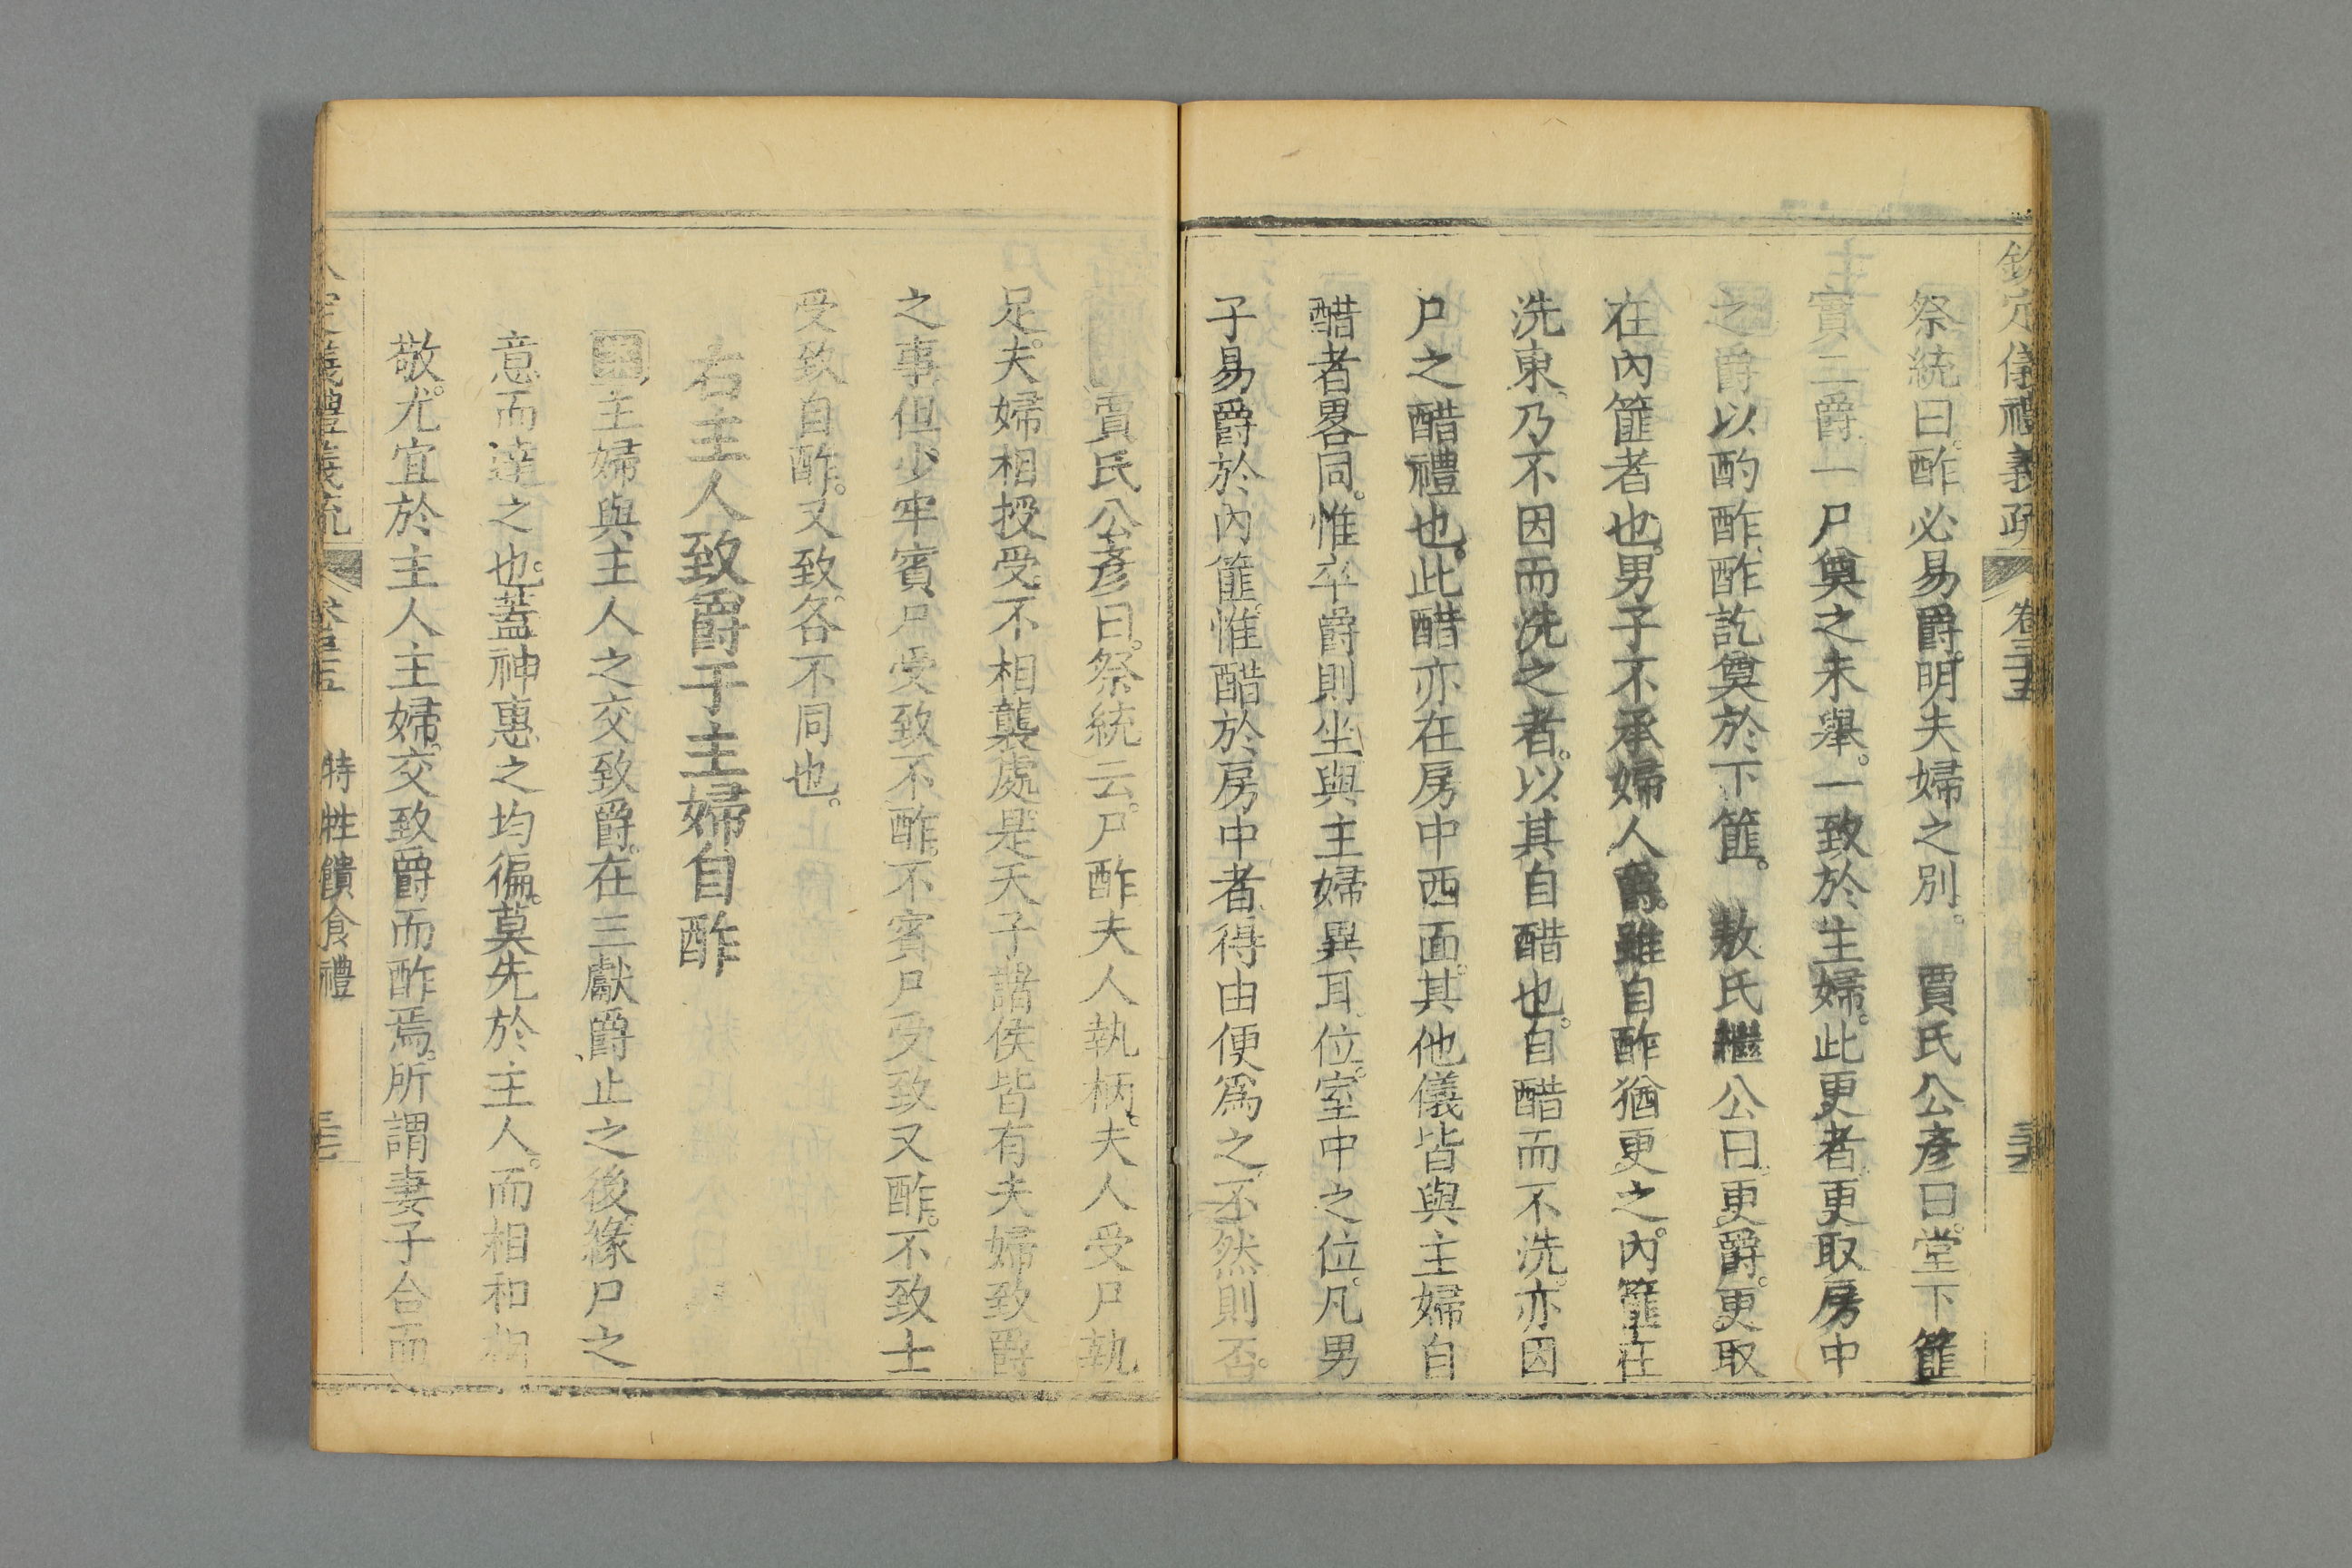 欽定儀禮義疏 卷三十五
祭統曰。酢必易爵。明夫婦之別。 賈氏公彥曰。堂下篚
實三爵。一尸奠之未舉。一致於主婦。此更者。更取房中
之爵以酌酢。酢訖奠於下篚。 敖氏繼公曰。更爵。更取
在內篚者也。男子不承婦人爵。雖自酢猶更之。內篚在
洗東。乃不因而洗之者。以其自醋也。自醋而不洗。亦因
尸之醋禮也。此醋亦在房中西面。其他儀皆與主婦自
醋者畧同。惟卒爵則坐與主婦異耳。位。室中之位。凡男
子易爵於內篚。惟醋於房中者。得由便爲之。不然則否。
賈氏公彥曰。祭統云。尸酢夫人執柄。夫人受尸執
足。夫婦相授受。不相襲處。是天子諸侯皆有夫婦致爵
之事。但少牢賓尸受致不酢。不賓尸受致又酢。不致士
受致自酢。又致。各不同也。
右主人致爵于主婦自酢
主婦與主人之交致爵。在三獻爵止之後。緣尸之
意而達之也。蓋神惠之均徧。莫先於主人。而相和相
敬。尤宜於主人主婦。交致爵而酢焉。所謂妻子合而
儀禮義疏 卷三十五 特牲饋食禮